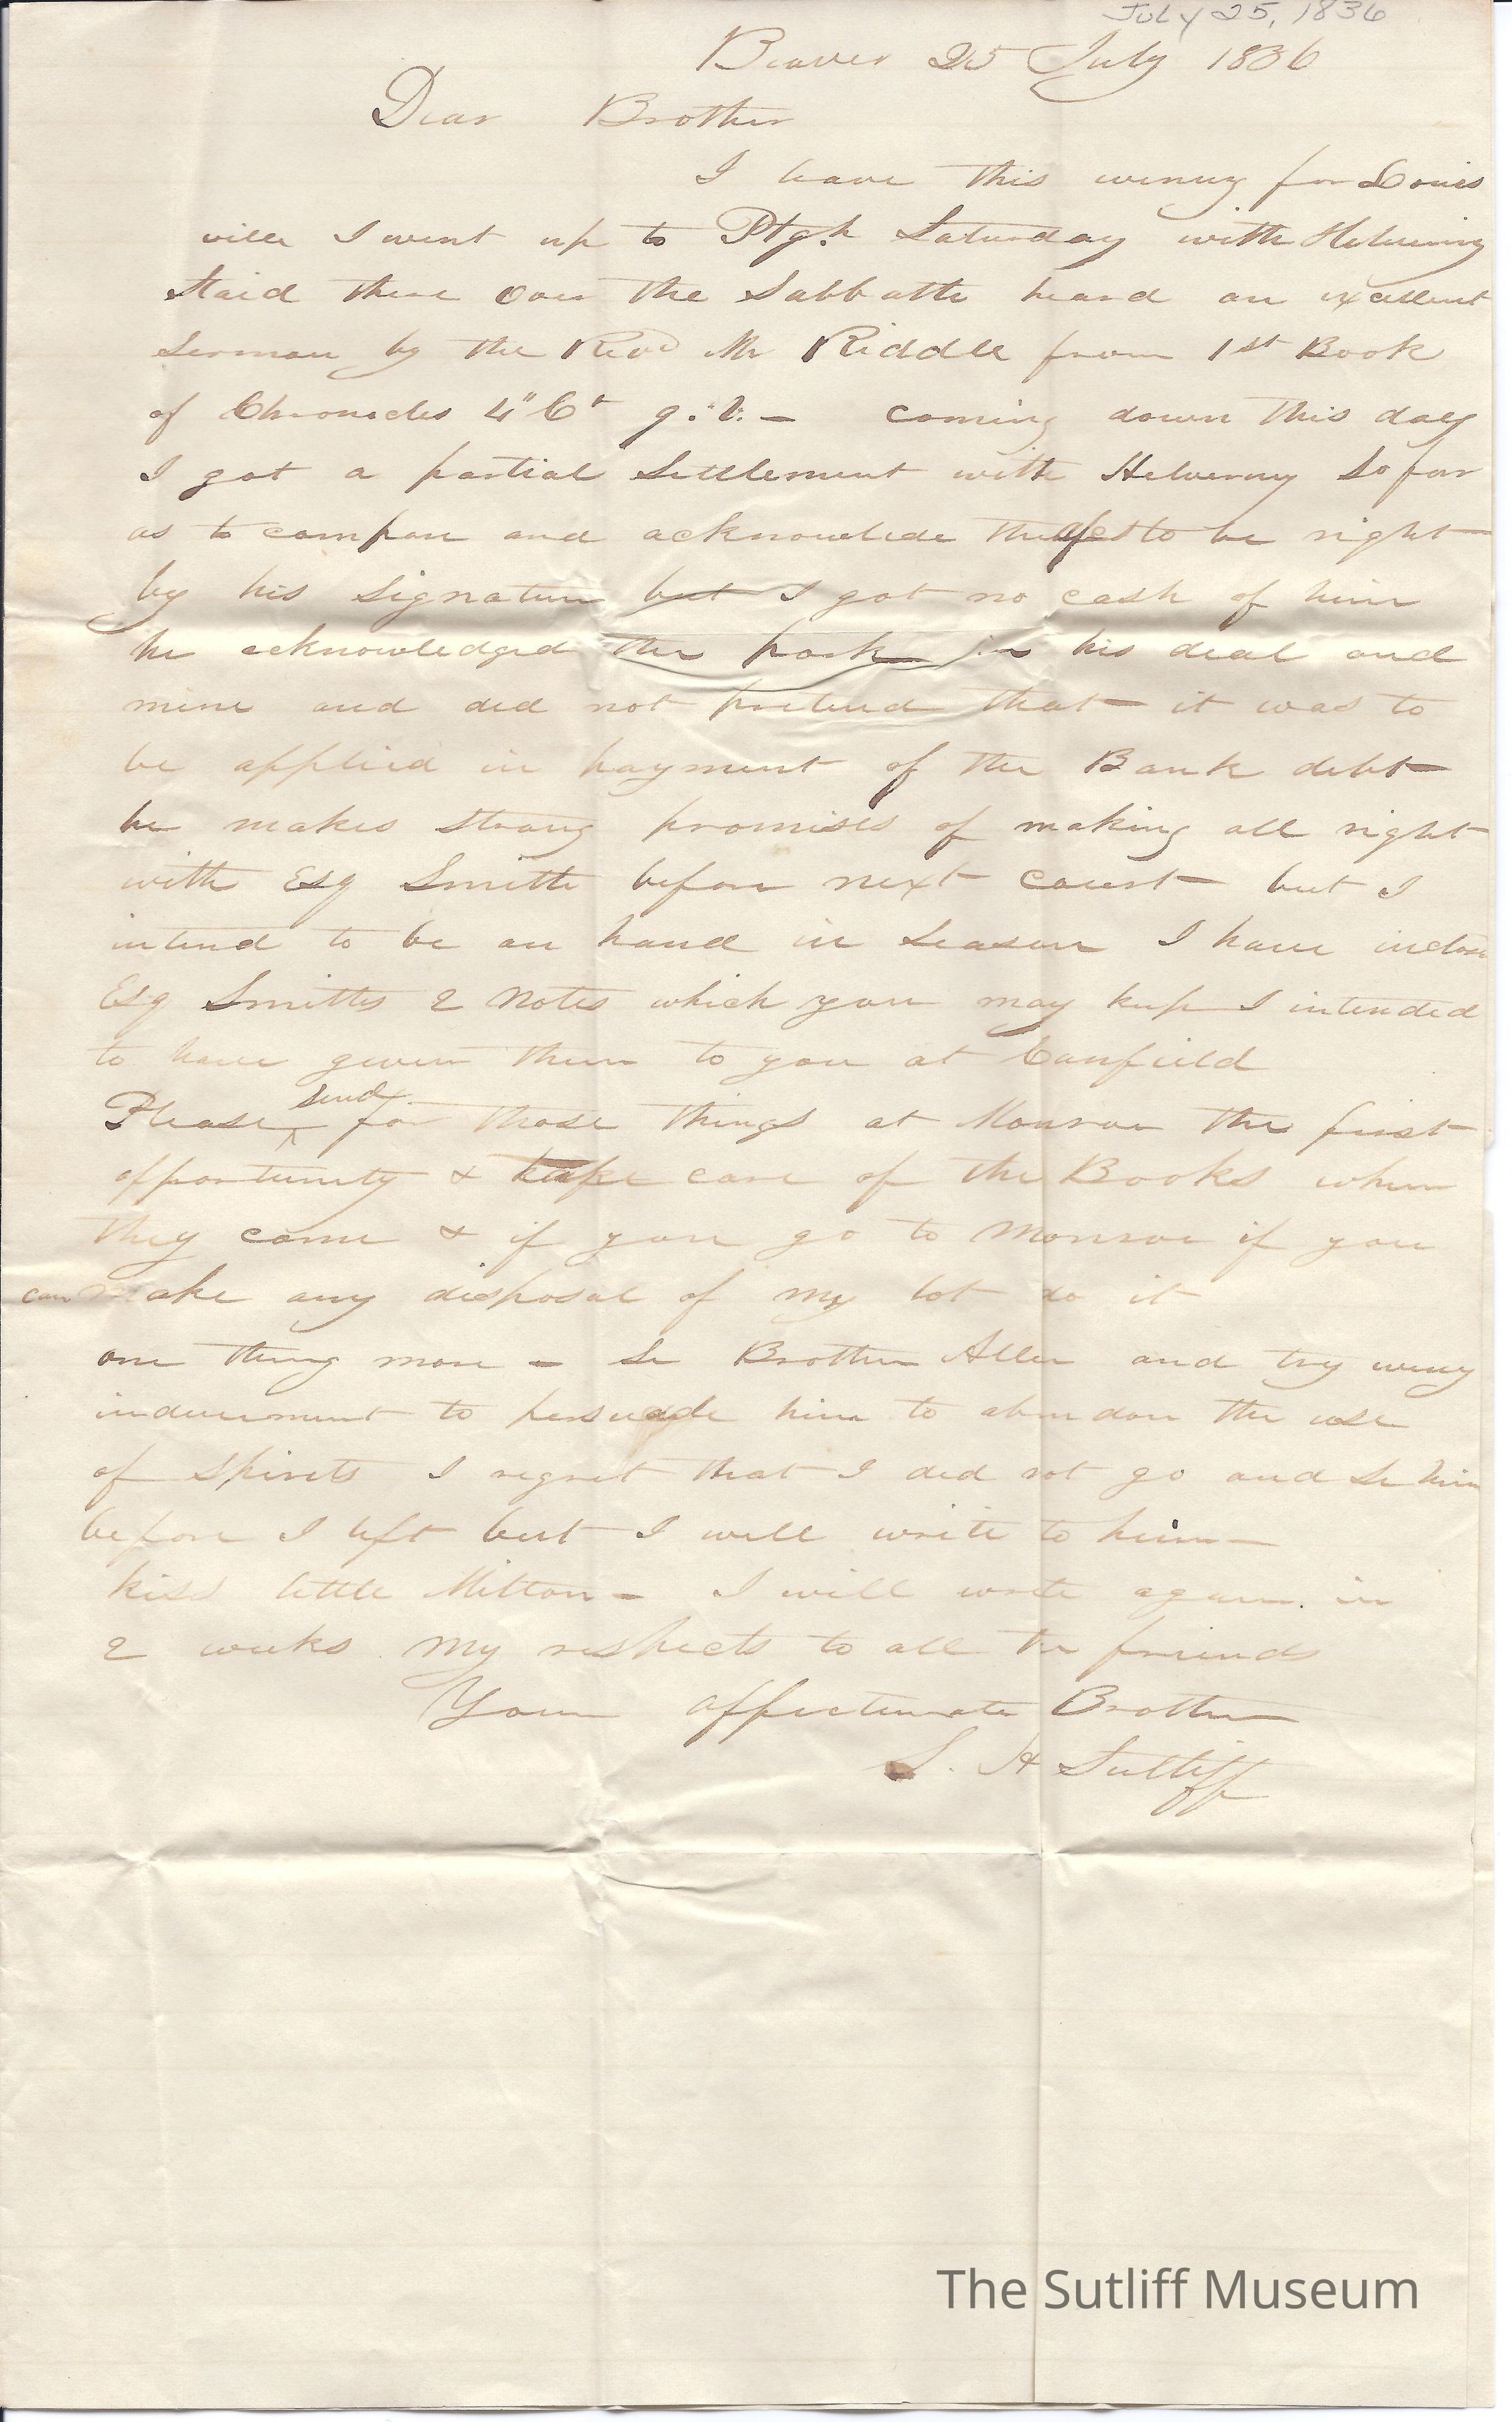 July 25, 1836
Beaver 25 July 1836
Dear Brother
I leave this evening for Louis
ville I went up to Ptgh Saturday with Helverny
staid there over the Sabbath heard an excellent
sermon by the Revd Mr Riddle from 1st Book
of Chronicles 4" coming down this day
I got a partial settlement with Helverny so far
as to compare and acknowlede the to be right
by his signature but I got no cash of him
he acknowledged the pork in his deal and
mine and did not pretend that it was to
be applied in payment of the Bank debt
he makes strong promises of making all right
with Esq Smith before next court but I
intend to be on hand in season I have inclose
Esq Smiths 2 notes which you may keep I intended
to have given them to you at Canfield
Please send for those things at Monroe the first
opportunity & take care of the Books when
they come & if you go to Monroe if you
can make any disposal of my lot do it
one thing more - se Brother Allen and try every
inducement to persuade him to abandon the use
of spirits I regret that I did not go and se him
before I left but I will write to him
kiss little Milton - I will write again in
2 weeks my respects to all the friends
Your affectionate Brother
S. H Sutliff
The Sutliff Museum